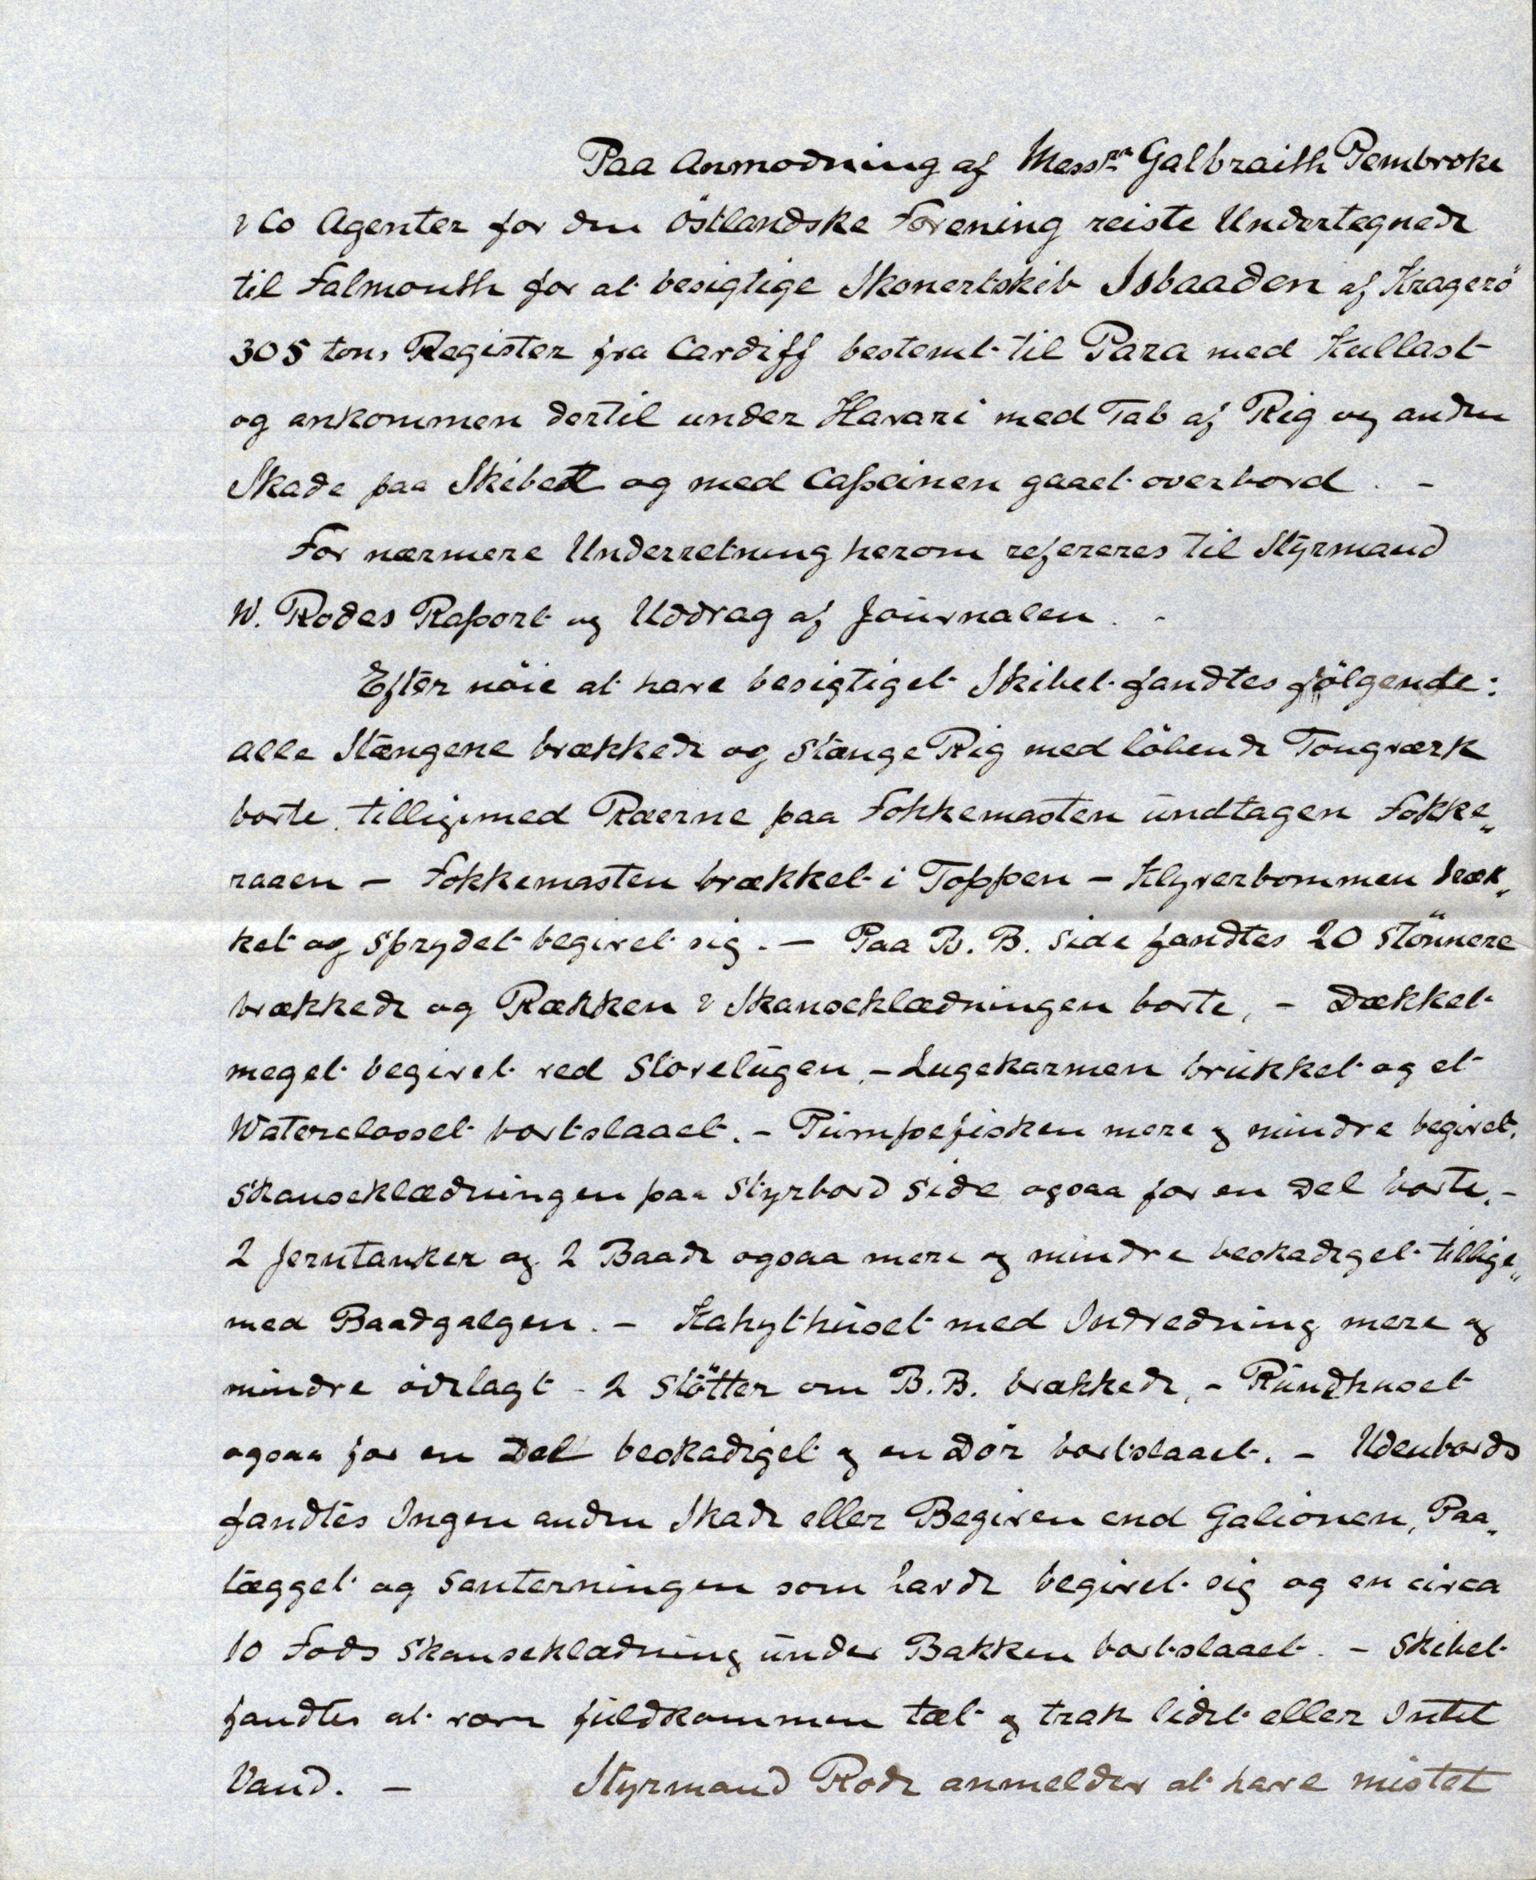 Paa Anmodning af Messrs Galbraith Pembroke
& Co Agenter for den Östlandske Forening reiste Undertegnede
til Falmouth for at besigtige Skonertskib Isbaaden af Kragerö
305 tons Register fra Cardiff bestemt til Para med Kullast
og ankommen dertil under Havari med Tab af Rig og anden
Skade paa Skibet og med Capteinen gaaet overbord. –
For nærmere Underretning herom refereres til Styrmand
W. Rodes Raport og Uddrag af Journalen. –
Efter nöie at have besigtiget Skibet fandtes fölgende:
alle Stængene brækkede og Stænge Rig med löbende Tougværk
borte tilligemed Ræerne paa Fokkemasten undtagen Fokke„
raaen – Fokkemasten brækket i Toppen – Klyverbommen bræk„
ket og Sprydet begivet sig. – Paa B. B. Side fandtes 20 Stönnere
brækkede og Rækken & Skanseklædningen borte, – Dækket
meget begivet ved Storelugen, – Lugekarmen brukket og et
Waterclosset bortslaaet. – Pumpefisken mere og mindre begivet.
Skanseklædningen paa Styrbord Side ogsaa for en Del borte. –
2 Jerntanker og 2 Baade ogsaa mere og mindre beskadiget tillige„
med Baadgalgen. – Kahythuset med Indredning mere og
mindre ödelagt – 2 Stötter om B.B. brækkede, – Rundhuset
ogsaa for en Del beskadiget og en Dör bortslaaet. – Udenbords
fandtes Ingen anden Skade eller Begiven end Galionen, Paa„
lægget og Santerningen som havde begivet sig og en circa
10 Fods Skanseklædning under Bakken bortslaaet. – Skibet
fandtes at være fuldkommen tæt og trak lidet eller Intet
Vand. – Styrmand Rode anmelder at have mistet